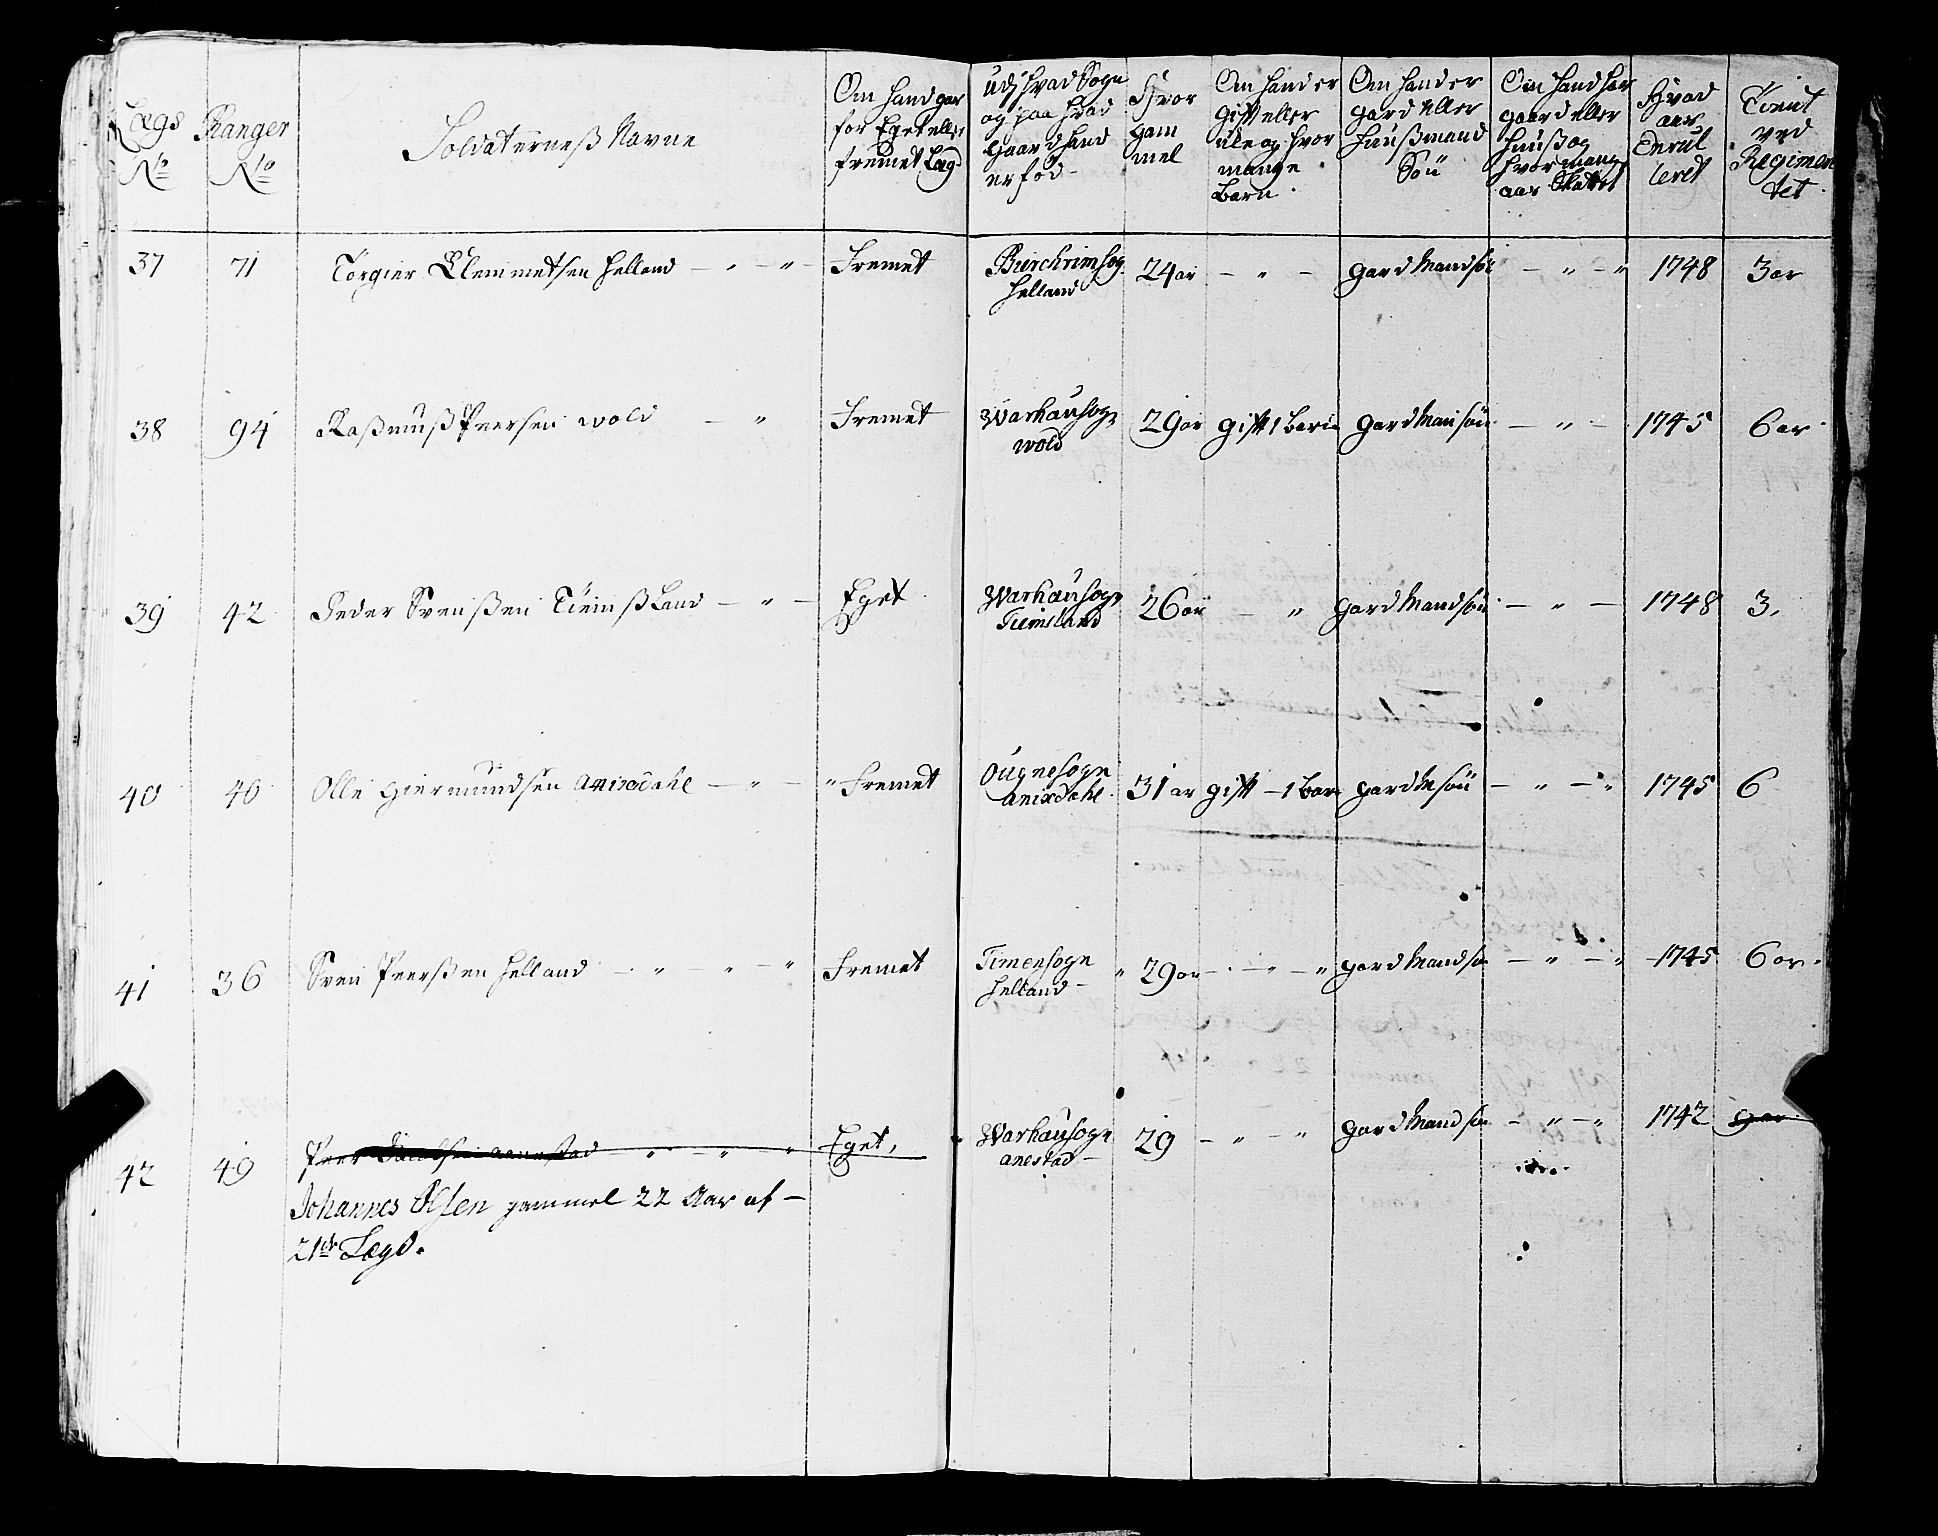 Lægs No
Ranger No
Soldaterneß Navne
Om hand gør for Eget eller fremet Læg
Udj hvad Sogn og paa hvad gaard hand er fød
Hvor gam mel
Om hand er gift eller ule og hvor mange Barn
Om hand er gard eller huußmand Søn
Om hand har gaard eller huuß og hvor mange aar Skattet
Hvad aar Enrul leret
Tient ved Regimen tet
37 71 Torgier Clemmetsen Helland — „ — „ — Fremet Buerchrimsog Helland 24 ar — „ — gard Mandsøn — „ — „ 1748 3 ar
38 94 Raßmuß Peersen wold — „ Fremet Warhausogn wold 29 ar gift 1 barn gard Mansøn — „ — 1745 6 ar
39 42 Peder Svenßen Tiemßland — „ — Eget Warhausogn Tiemsland 26 ar — „ gard Mandsøn — „ — 1748 3.
40 40 Olle giermundsen Anixdahl — „ — „ Fremet Ougnesogn anixdahl 31 ar gift — 1 bar gard M søn — „ — „ 1745 6
41 36 Sven Peerßen Helland — „ „ — „ Fremet Timensogn Helland „ 29 ar — „ — „ gard Mandsø — „ — „ 1745 6 ar
42 49 Peer aanestad „ — „ — „ Eget, Warhausogn anestad 29 — „ — „ gard Mandsø — „ — „ 1742 9 ar
Johannes Olsen gammel 22 Aar af —
21de Lægd.